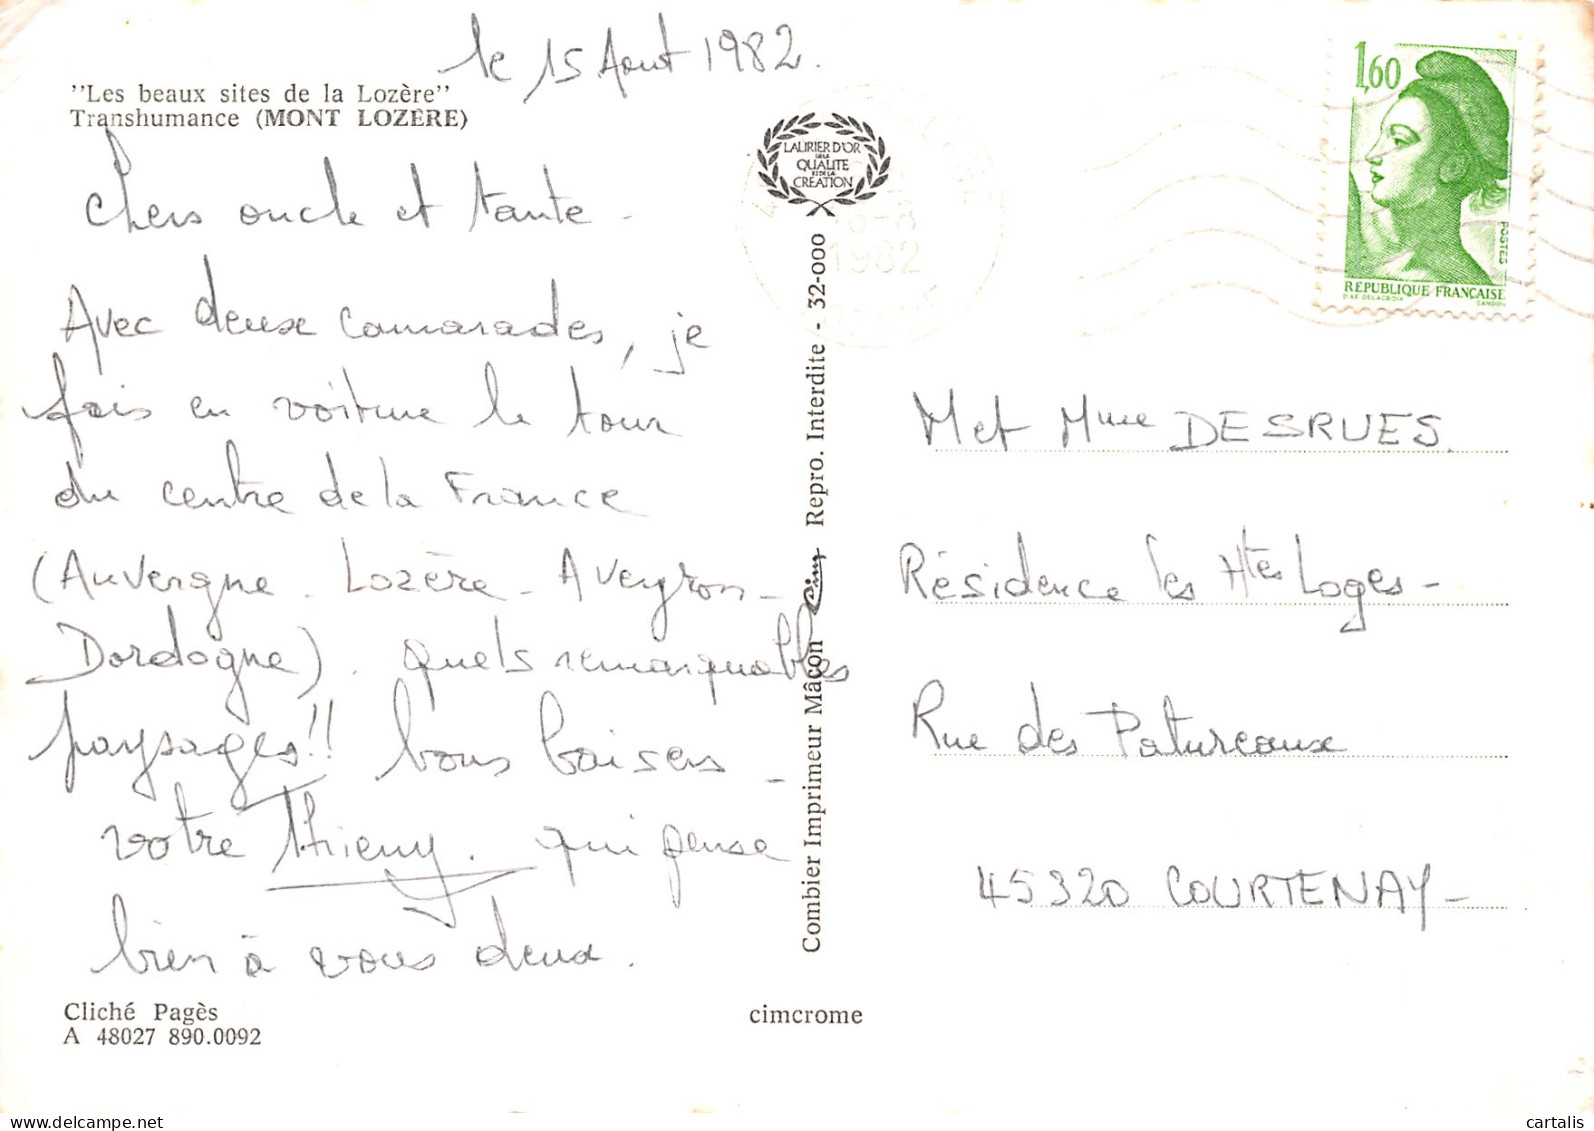 le 15 Aout 1982.
"Les beaux sites de la Lozère"
Transhumance (MONT LOZÈRE)
Chers oncle et tante -
Avec deux camarades, je
fais en voiture le tour
du centre de la France
(Auvergne - Lozère - Aveyron -
Dordogne). quels remarquables
paysages!! bons baisers -
votre Thierry. qui pense
bien à vous deux.
Cliché Pagès
A 48027 890.0092
LAURIER D'OR
DE LA
QUALITE
ET DE LA
CREATION
Combier Imprimeur Mâcon Cim Repro. Interdite - 32-000
cimcrome
6-8
1982
1,60
POSTES
REPUBLIQUE FRANÇAISE
D'AP. DELACROIX
GANDON
M et Mme DESRUES
Résidence les Htes Loges -
Rue des Patureaux
45320 COURTENAY -
cartalis